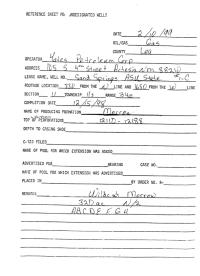 REFERENCE SHEET FOR UNDESIGNATED WELLS
DATE 2/10/99
OIL/GAS Gas
COUNTY Lea
OPERATOR Yates Petroleum Corp
ADDRESS 105 S 4th Street Artesia NM 88210
LEASE NAME, WELL NO. Sand Springs ASU State #1-C
FOOTAGE LOCATION 330 FROM THE N LINE AND 1650 FROM THE W LINE
SECTION 11 TOWNSHIP 11s RANGE 34e
COMPLETION DATE 12/15/98
NAME OF PRODUCING FORMATION Morrow
TOP OF PERFORATIONS 12110-12188
DEPTH TO CASING SHOE
C-123 FILED
NAME OF POOL FOR WHICH EXTENSION WAS ASKED
ADVERTISED FOR HEARING CASE NO.
NAME OF POOL FOR WHICH EXTENSION WAS ADVERTISED
PLACED IN BY ORDER NO. R-
REMARKS: Wildcat Morrow
320 ac N/2
ABCDEFGH